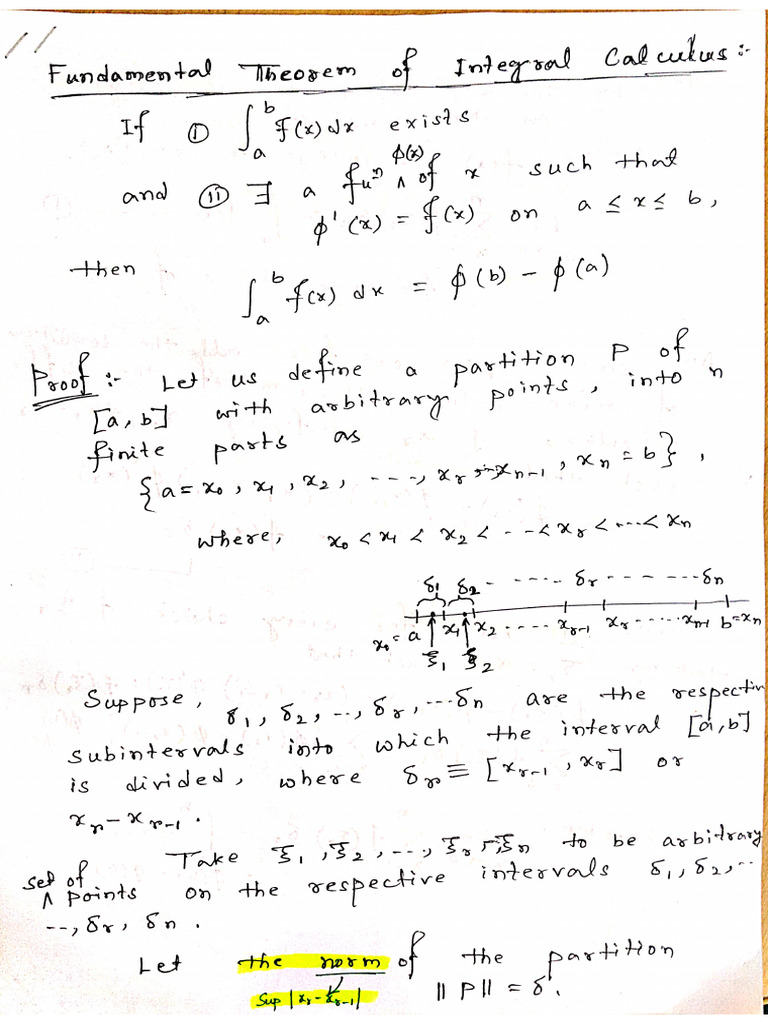 Fundamental Theorem of Integral Calculus:-
If ① ∫_a^b f(x) dx exists
and ⑪ ∃ a fuⁿ ϕ(x) of x such that
ϕ'(x) = f(x) on a ≤ x ≤ b,
then
∫_a^b f(x) dx = ϕ(b) - ϕ(a)
Proof:- Let us define a partition P of
[a, b] with arbitrary points, into n
finite parts as
{a = x₀, x₁, x₂, ---, x_r, ..., x_{n-1}, x_n = b},
where, x₀ < x₁ < x₂ < --< x_r < ... < x_n
δ₁ δ₂ - ----- δ_r - - - ---- δ_n
x₀ = a x₁ x₂ ..... x_{r-1} x_r ...... x_{n-1} b = x_n
ξ₁ ξ₂
Suppose, δ₁, δ₂, .., δ_r, ... δ_n are the respectiv
subintervals into which the interval [a, b]
is divided, where δ_r ≡ [x_{r-1}, x_r] or
x_r - x_{r-1}.
Take ξ₁, ξ₂, ---, ξ_r, ξ_n to be arbitrary
set of points on the respective intervals δ₁, δ₂, --
--, δ_r, δ_n.
Let the norm of the partition
Sup |x_r - x_{r-1}| ||P|| = δ.